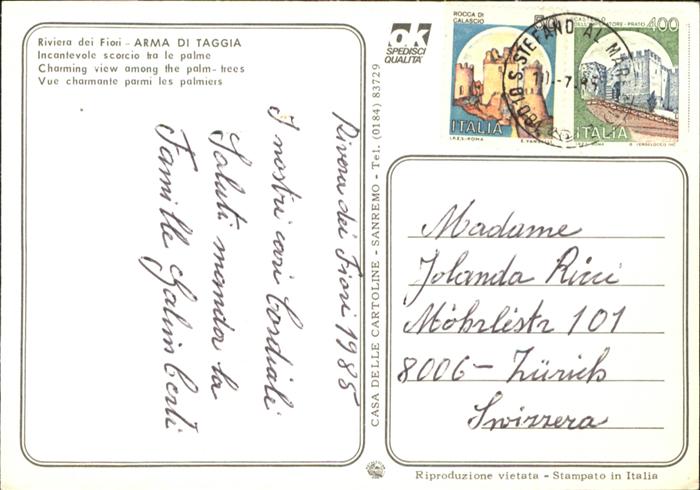 Riviera dei Fiori - ARMA DI TAGGIA
Incantevole scorcio tra le palme
Charming view among the palm-trees
Vue charmante parmi les palmiers
Rivera dei Fiori 1985
I nostri cari Cordiali
Saluti manda la
Famille Galimberti
CASA DELLE CARTOLINE - SANREMO - Tel. (0184) 83729
ok
SPEDISCI
QUALITA'
ROCCA DI
CALASCIO
ITALIA
I.P.Z.S.-ROMA
CASTELLO
DELL'IMPERATORE-PRATO
400
ITALIA
I.P.Z.S.-ROMA
S.STEFANO AL MAR
Madame
Jolanda Ricci
Möhrlistr 101
8006 - Zürich
Svizzera
Riproduzione vietata - Stampato in Italia